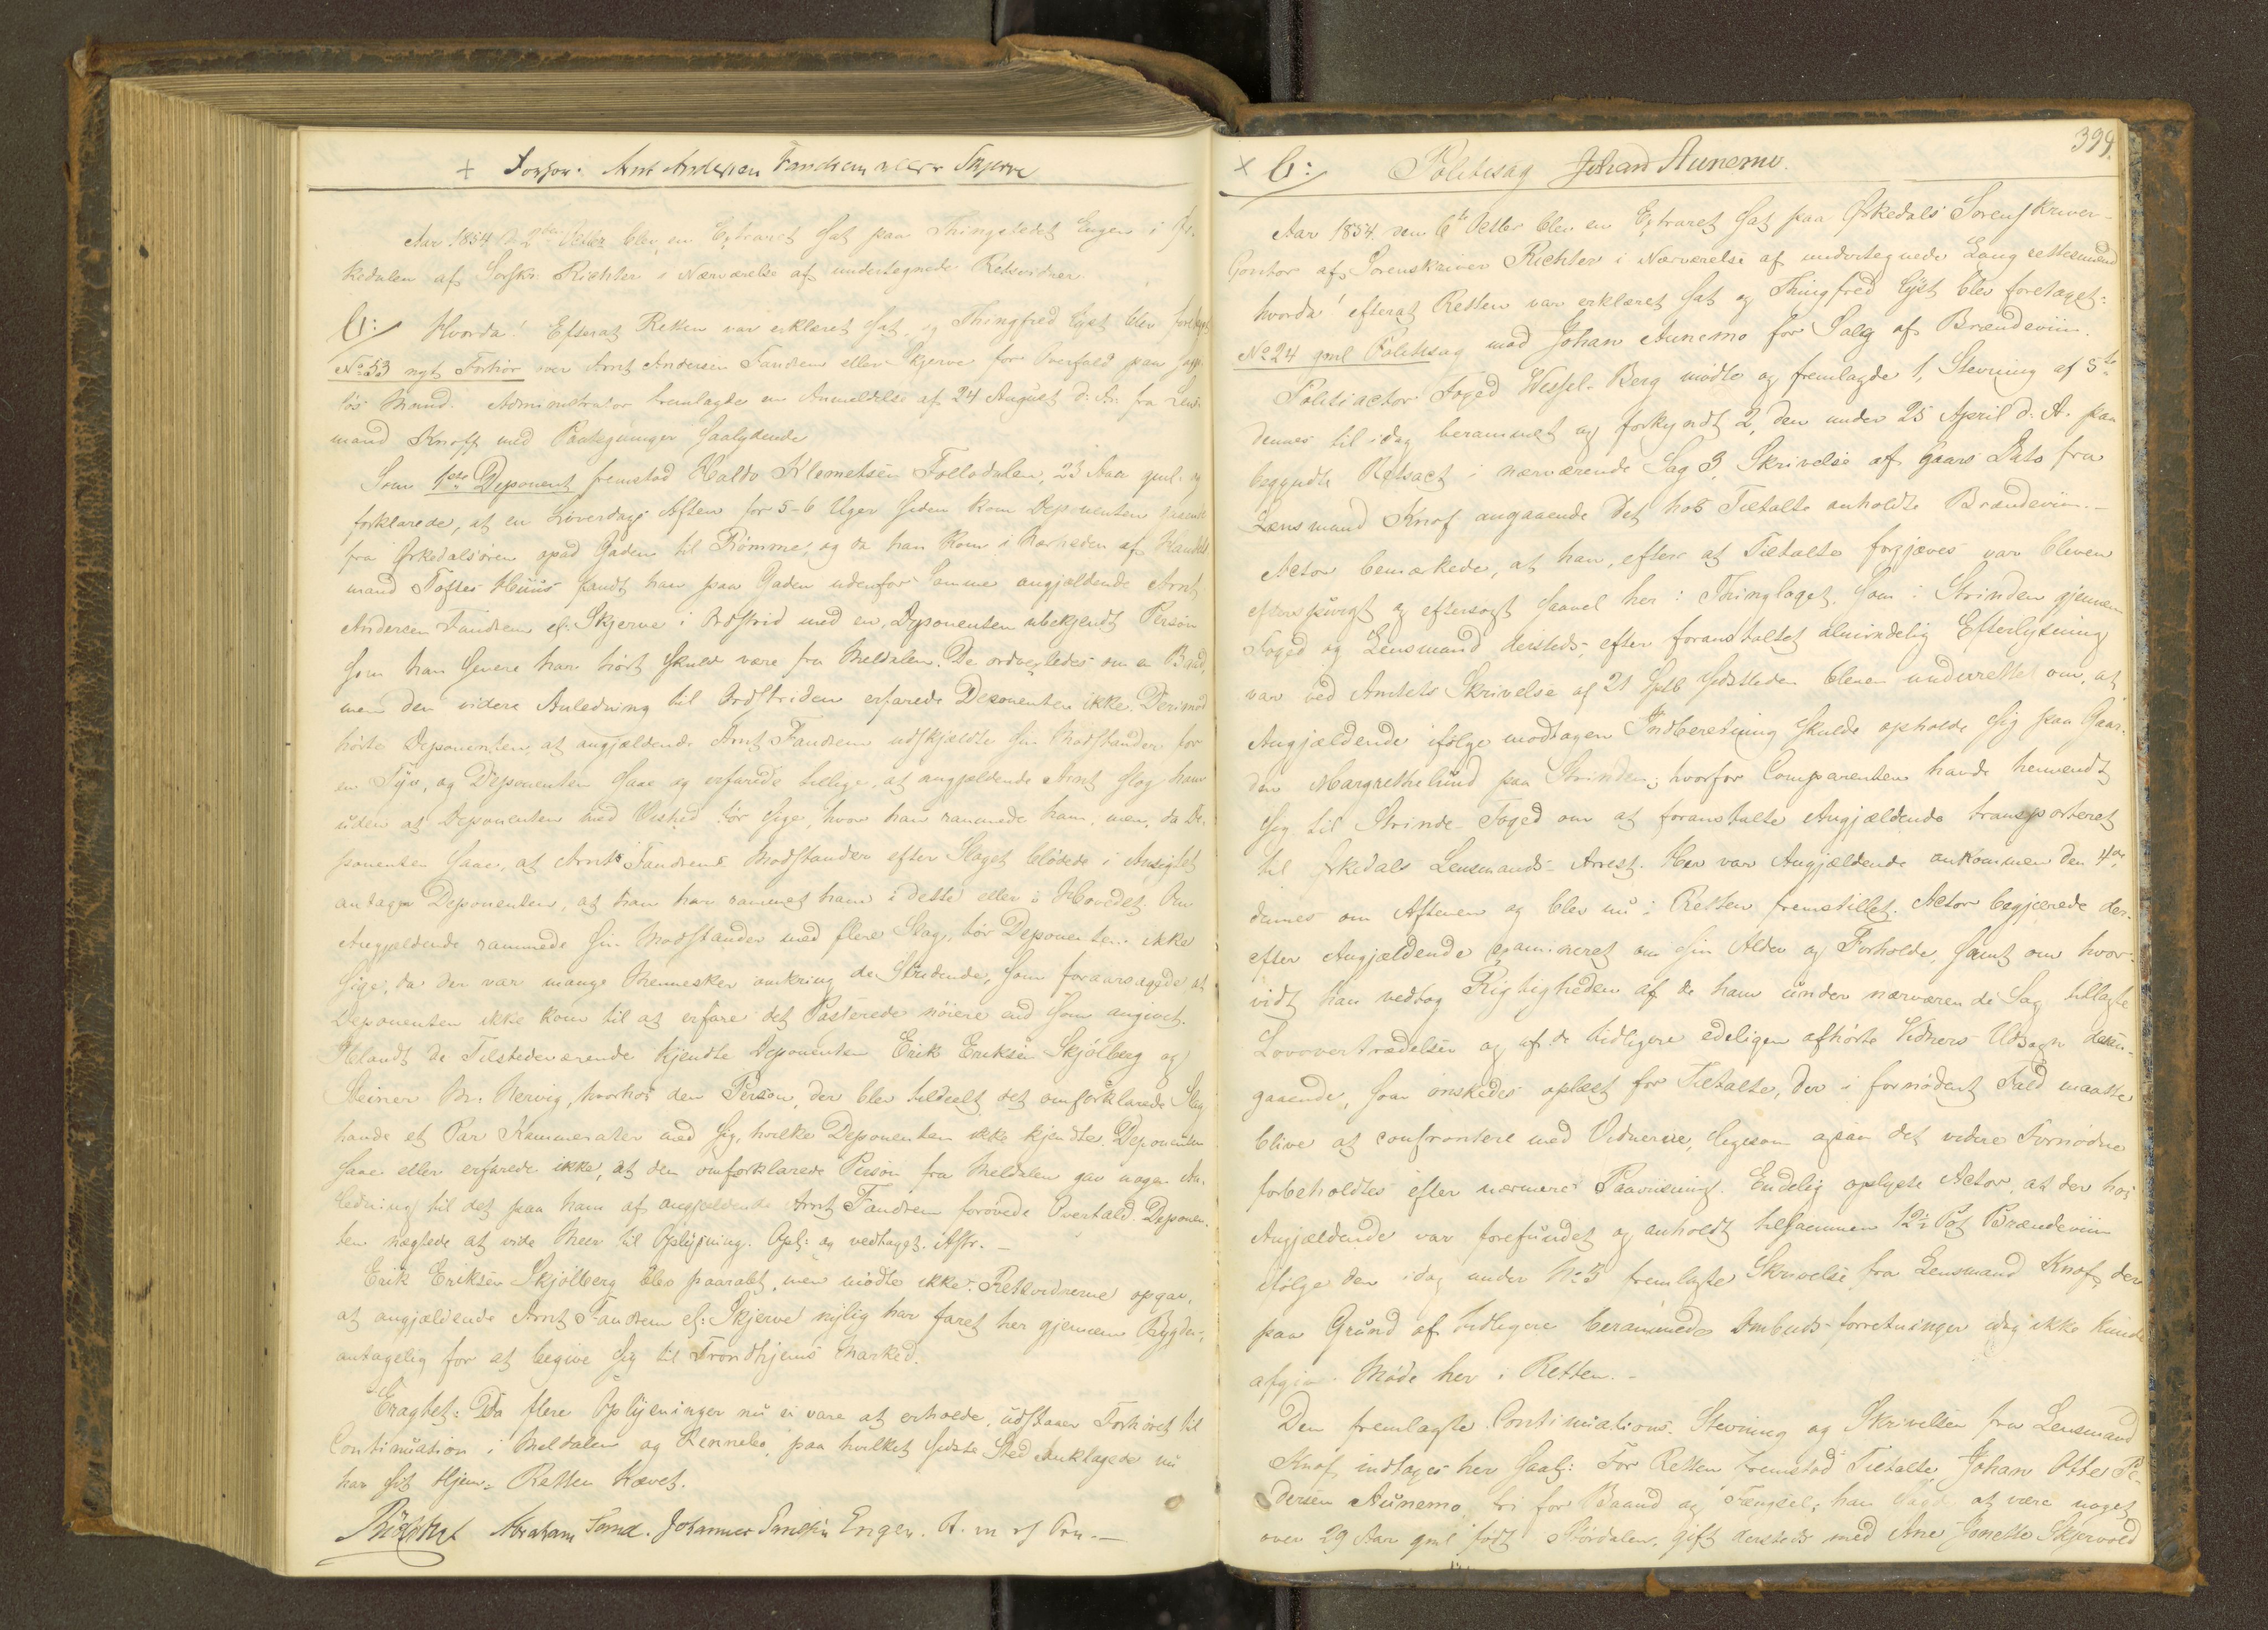 + Forhør. Arnt Andersen Fandrem eller Skjerve
Aar 1854 d. 2den Octbr blev en Extraret sat paa Thingstedet Engen i Ør-
kedalen af Sorskr. Richter i Nærværelse af undertegnede Retsvidner
C: Hvorda! Efterat Retten var erklæret sat og Thingfred lyst blev foretaget
No 53 nyt Forhør over Arnt Andersen Fandrem eller Skjerve for Overfald paa
løs Mand. Administrator fremlagde en Anmeldelse af 24 August d. A. fra Lens-
mand Knoff med Paategninger saalydende
Som 1ste Deponent fremstod Haldo Kleonetsen Follodalen, 23 Aar gml. og
forklarede, at en Løverdags Aften for 5-6 Uger siden kom Deponenten
fra Ørkedalsøren opad Gaden til Rømme, og da han kom i Nærheden af Handels
mand Toftes Huus fandt han paa Gaden udenfor Samme angjældende Arnt
Andersen Fandrem el. Skjerve i Ordstrid med en, Deponenten ubekjendt Person
som han senere har hørt skulde være fra Meldalen. De ordvexledes om en
men den videre Anledning til Ordstriden erfarede Deponenten ikke. Derimod
hørte Deponenten, at angjældende Arnt Fandrem udskjældte sin Modstander for
en Tyv, og Deponenten saae og erfarede tillige, at angjældende Arnt slog ham
uden at Deponenten med Vished tør sige, hvor han rammede ham, men, da De-
ponenten saae, at Arnt Fandrems Modstander efter Slaget blødede i Ansigtet
antager Deponenten, at han har rammet ham i dette eller i Hovedet. Om
Angjældende rammede sin Modstander med flere Slag, tør Deponenten ikke
sige, da der var mange Mennesker omkring de Stridende, som foraarsagede, at
Deponenten ikke kom til at erfare det Passerede nøiere end som angivet.
Iblandt de Tilstedeværende kjendte Deponenten Erik Eriksen Skjølberg og
Steiner Br. Nervig, hvorhos den Person, der blev tildeelt det omforklarede Slag
havde et Par Kammerater med sig, hvilke Deponenten ikke kjendte. Deponenten
saae eller erfarede ikke, at den omforklarede Person fra Meldalen gav nogen An-
ledning til det paa ham af angjældende Arnt Fandrem forøvede Overfald. Deponen-
ten nægtede at vide Meer til Oplysning. Opl: og vedtaget. Aftr. —
Erik Eriksen Skjølberg blev paaraabt, men mødte ikke. Retsvidnerne opgav,
at angjældende Arnt Fandrem el: Skjerve nylig har faret her gjennem Bygden,
antagelig for at begive sig til Trondhjems Marked.
Eragtet: Da flere Oplysninger nu ei vare at erholde, udstaaer Forhøret til
Continuation i Meldalen og Rennebo, paa hvilket sidste Sted Anklagede nu
har sit Hjem. Retten hævet.
Richter Abraham Sand. Johannes Engen.
399.
× C: Politisag Johan Aunemo.
Aar 1854 den 6te Octbr blev en Extraret sat paa Ørkedals Sorenskriver-
Contor af Sorenskriver Richter i Nærværelse af undertegnede Laugrettesmænd
hvorda! efterat Retten var erklæret sat og Thingfred lyst blev foretaget:
No 24 gml Politisag mod Johan Aunemo for Salg af Brændeviin.
Politiactor Foged Wessel-Berg mødte og fremlagde 1, Stevning af 5te
dennes til idag berammet og forkyndt 2, den under 25 April d. A. paa
begyndte Retsact i nærværende Sag 3, Skrivelse af Gaars Dato fra
Lensmand Knof angaaende det hos Tiltalte anholdte Brændeviin. —
Actor bemærkede, at han, efter at Tiltalte forgjæves var bleven
efterspurgt og eftersøgt saavel her i Thinglaget, som i Strinden gjennem
Foged og Lensmand dersteds, efter foranstaltet almindelig Efterlysning
var ved Amtets Skrivelse af 21 Septb sidstleden bleven underrettet om, at
Angjældende ifølge modtagen Indberetning skulde opholde sig paa Gaar-
den Margrethelund paa Strinden; hvorfor Comparenten havde henvendt
sig til Strinde Foged om at foranstalte Angjældende transporteret
til Ørkedals Lensmands-Arrest. Her var Angjældende ankommen den 4de
dennes om Aftenen og blev nu i Retten fremstillet. Actor begjærede der-
efter Angjældende examineret om sin Alder og Forholde, samt om hvor-
vidt han vedtog Rigtigheden af de ham under nærværende Sag tillagte
Lovovertrædelser og af de tidligere edeligen afhørte Vidners Udsagn desan-
gaaende, som ønskedes oplæst for Tiltalte, der i fornødent Fald maatte
blive at confrontere med Vidnerne, ligesom ogsaa det videre Fornødne
forbeholdtes efter nærmere Paaviisning. Endelig oplyste Actor, at der hos
Angjældende var forefundet og anholdt tilsammen 12½ Pot Brændeviin
ifølge den idag under No 3 fremlagte Skrivelse fra Lensmand Knof, der
paa Grund af tidligere berammede Ombuds-forretninger idag ikke kunde
afgive Møde her i Retten. —
Den fremlagte Continuations-Stevning og Skrivelsen fra Lensmand
Knof indtages her saal: For Retten fremstod Tiltalte Johan Otter Pe-
dersen Aunemo, fri for Baand og Fængsel; han sagde at være noget
over 29 Aar gml født i Størdalen, gift dersteds med Ane Jonette Skjervold